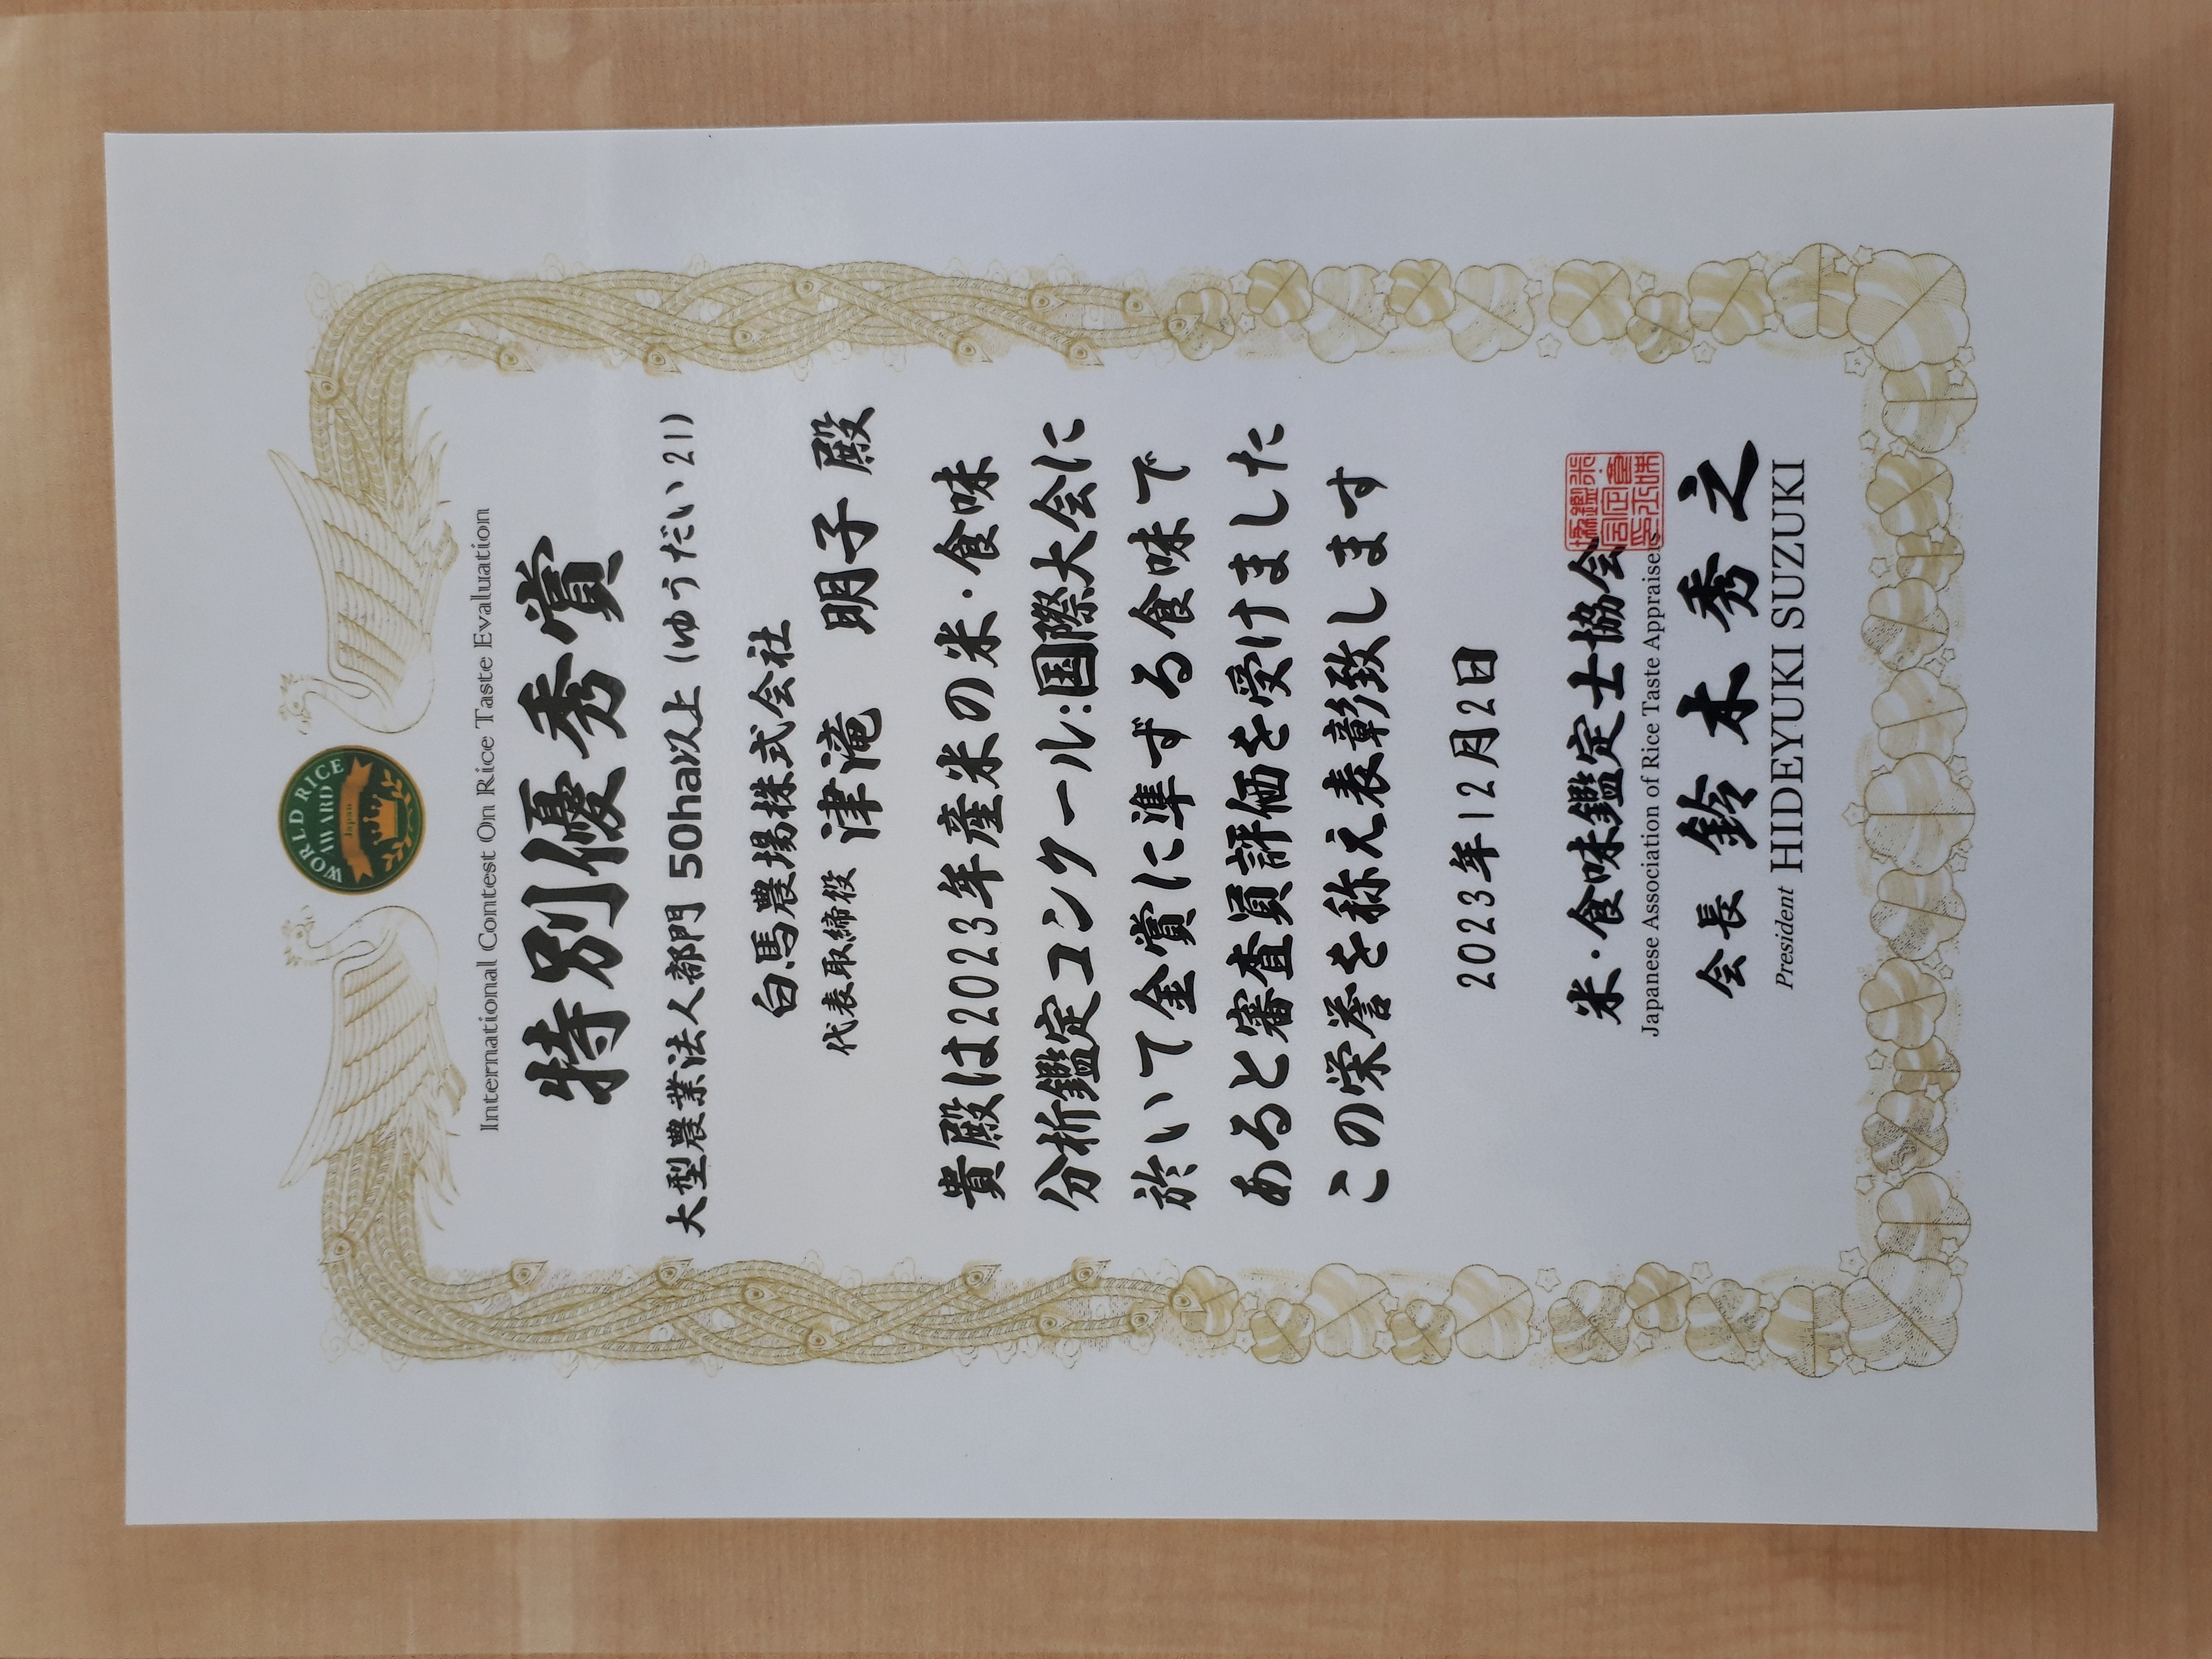 WORLD RICE
AWARD
Japan
International Contest On Rice Taste Evaluation
特別優秀賞
大型農業法人部門 50ha以上 (ゆうだい21)
白馬農場株式会社
代表取締役 津滝 明子 殿
貴殿は2023年産米の米・食味
分析鑑定コンクール:国際大会に
於いて金賞に準ずる食味で
あると審査員評価を受けました
この栄誉を称え表彰致します
2023年12月2日
米・食味鑑定士協会
Japanese Association of Rice Taste Appraisers
会長 鈴木秀之
President HIDEYUKI SUZUKI